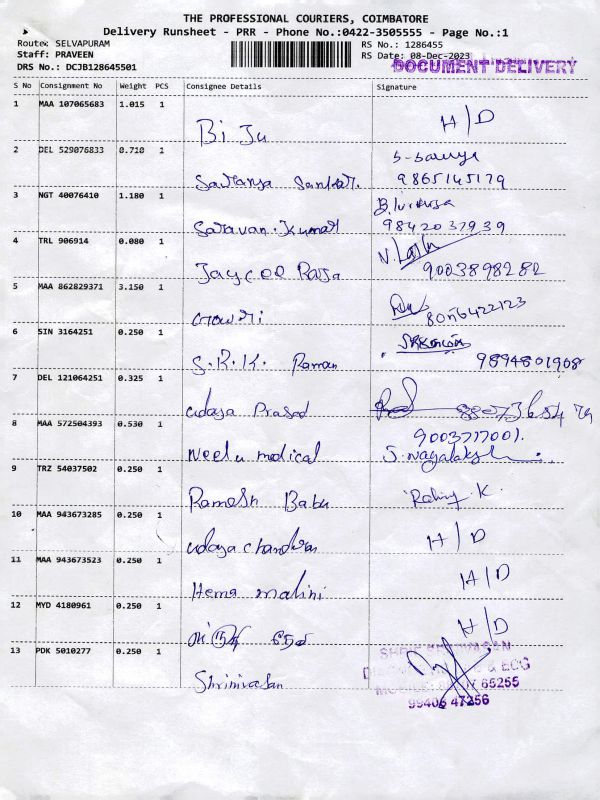 THE PROFESSIONAL COURIERS, COIMBATORE
Delivery Runsheet - PRR - Phone No.:0422-3505555 - Page No.:1
Route: SELVAPURAM
Staff: PRAVEEN
DRS No.: DCJB128645501
RS No.: 1286455
RS Date: 08-Dec-2023
DOCUMENT DELIVERY
S No Consignment No Weight PCS Consignee Details Signature
1 MAA 107065683 1.015 1
Biju H/D
2 DEL 529076833 0.710 1
S-Sowmya
Saranya Sankar. 9865145179
3 NGT 40076410 1.180 1
Saravan.Kumar 9842037939
4 TRL 906914 0.080 1
Jaycee Raja 9003898282
5 MAA 862829371 3.150 1
Gowri 8056422123
6 SIN 3164251 0.250 1
S.R.K. Raman 9894801908
7 DEL 121064251 0.325 1
Udaya Prasad
8 MAA 572504393 0.530 1
9003717001.
Neelu medical S. Nagalaksh
9 TRZ 54037502 0.250 1
Ramesh Babu K
10 MAA 943673285 0.250 1
Udaya chandran H/D
11 MAA 943673523 0.250 1
Hema malini H/D
12 MYD 4180961 0.250 1
H/D
13 PDK 5010277 0.250 1
Shrinivasan
& ECG
65255
99406 47256